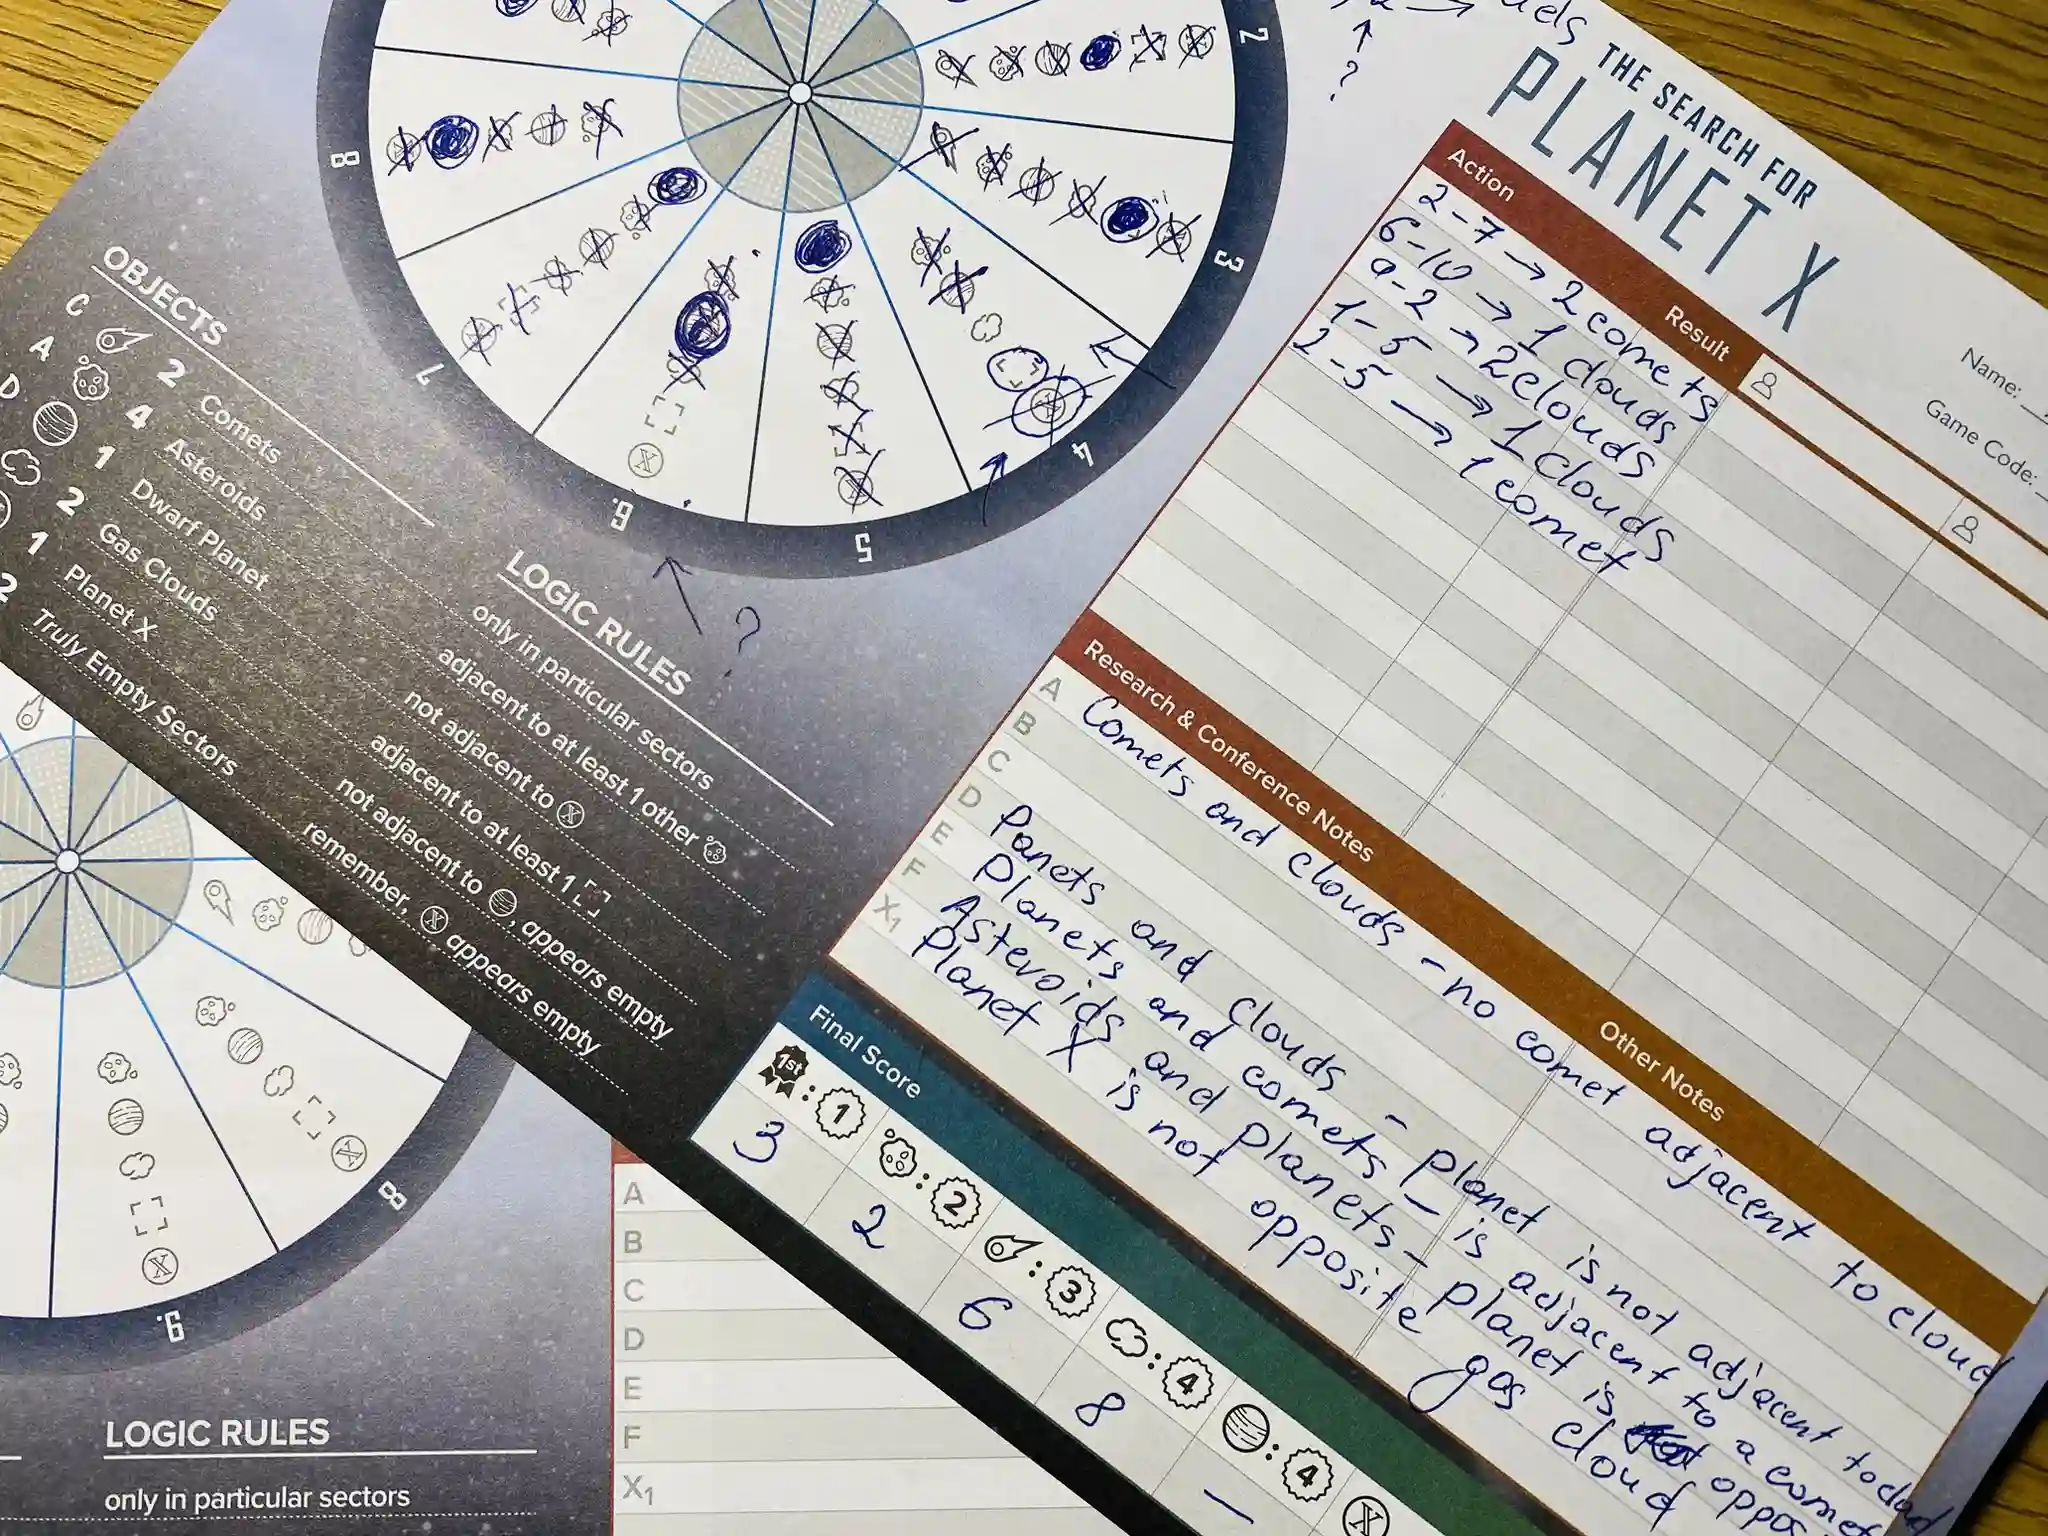 uds
?
THE SEARCH FOR
PLANET X
Name:
Game Code:
Action
Result
2-7 → 2 comets
6-10 → 1 clouds
9-2 → 2 clouds
1-5 → 1 clouds
2-5 → 1 comet
2
3
4
5
6.
7
8
?
OBJECTS
C 2 Comets
A 4 Asteroids
D 1 Dwarf Planet
2 Gas Clouds
1 Planet X
2 Truly Empty Sectors
LOGIC RULES
only in particular sectors
adjacent to at least 1 other
not adjacent to X
adjacent to at least 1
not adjacent to , appears empty
remember, X appears empty
Research & Conference Notes
Other Notes
A Comets and clouds - no comet adjacent to cloud
B
C
D Panets and clouds - planet is not adjacent to cloud
E Planets and comets - is adjacent to a comet
F Asteroids and planets - planet is oppos
X1 Planet X is not opposite gas cloud
Final Score
1st : 1
: 2
: 3
: 4
: 4
X
3
2
6
8
—
X
8
9.
LOGIC RULES
only in particular sectors
A
B
C
D
E
F
X1